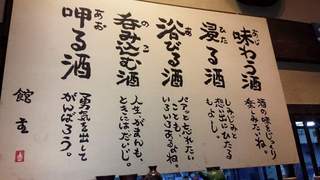 味わう酒
酒の味をじっくり
呑みたいね。
浸る酒
しみじみと
想い出にひたる
もよし。
浴びる酒
パァッと忘れたい
ことも、
いろいろあるよね。
呑み込む酒
人生、がまんも、
ときにはだいじ。
呷る酒
勇気を出して
がんばろう。
館主